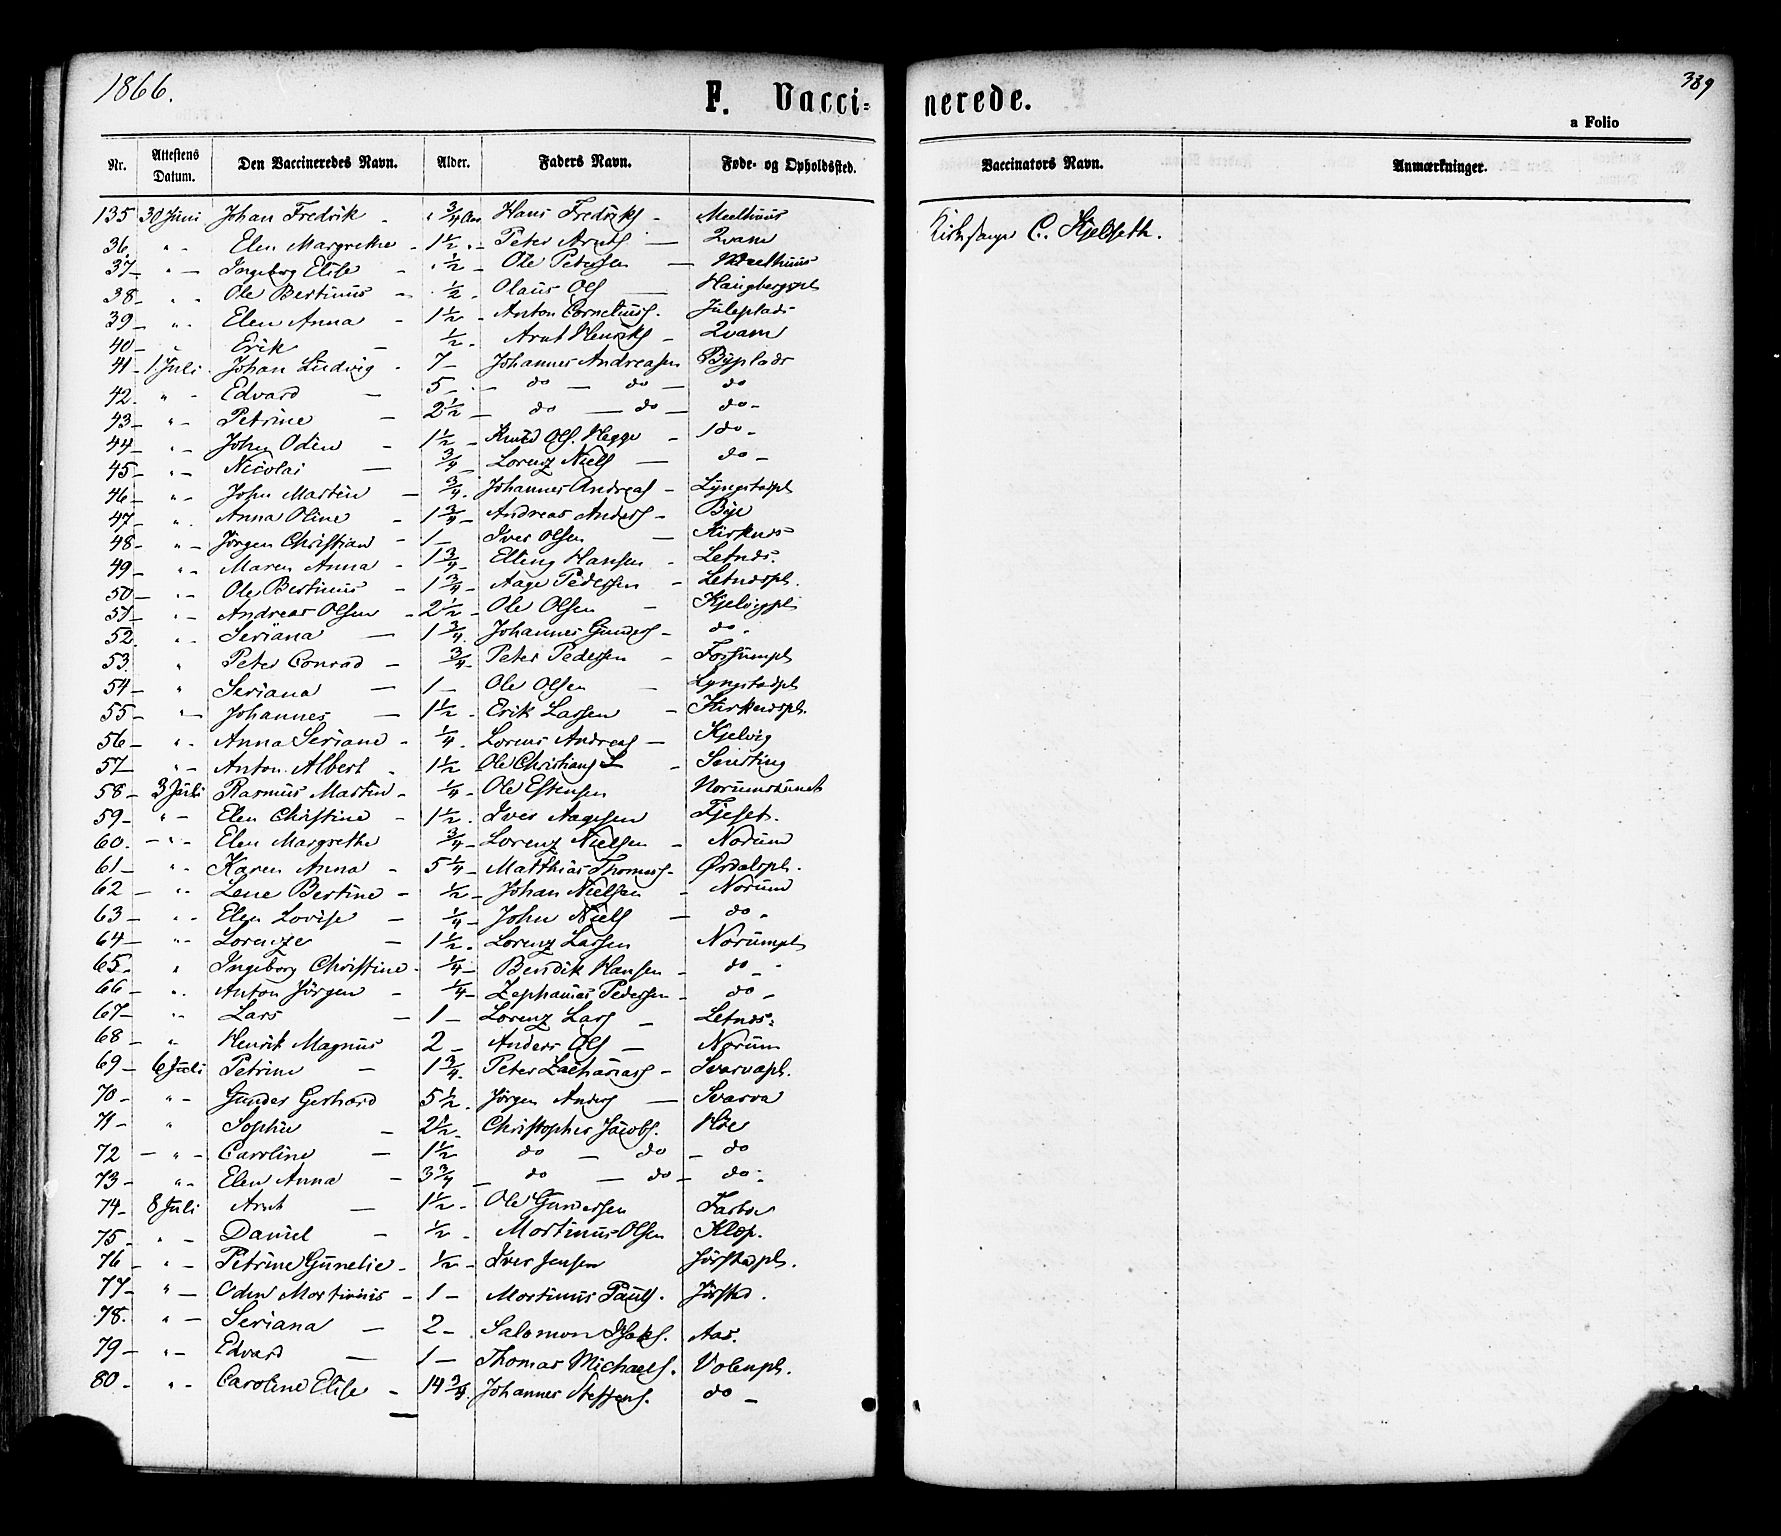 1866.
F. Vacci=
nerede.
389
a Folio
Nr. Attestens Datum. Den Vaccineredes Navn. Alder. Faders Navn. Føde- og Opholdssted. Vaccinators Navn. Anmærkninger.
135 30 Juni Johan Fredrik - " 3/4 Aar Hans Fredriks - Meelhuus Kirkesanger C. Hjelseth.
36. " - Elen Margrethe - 1 1/2 " - Peter Arnts — Qvam
37 - " — Ingeborg Elise - " 1/2 - Ole Petersen — Meelhuus
38 - " - Ole Bertinus - 1/2 Olaus Ols — Haugbergspl
39 - " - Elen Anna - 1 1/2 - Anton Cornelius. Juleplads
40 - " Erik — 1/2 - Arnt Henriks - Qvam
41 - 1 Juli Johan Ludvig - 7 - Johannes Andreasen Byplads
42. " - Edvard — 5 - — do — do — do
43 - " - Petrine — 2 1/2 — do — do — do -
44 - " - John Odin - 1 1/2 - Knud Ols. Hegge - do -
45 - " - Nicolai — 3/4 - Lorenz Niels — do -
46 - " - John Martin — 3/4. Johannes Andreas - Lyngstadpl
47 - " . Anna Oline - 1 3/4 - Andreas Anders - Bye
48 - " - Jörgen Christian - 1 - Iver Olsen — Kirknes
49 - " - Maren Anna - 1 3/4 - Elling Hansen - Letnes.
50 - " - Ole Bertinus - 1 3/4 - Aage Pedersen - Letnespl.
51 - " - Andreas Olsen - 2 1/2 - Ole Olsen - Kjelvigpl
52. " - Seriana — 1 3/4. Johannes Gunders - do -
53. " Peter Conrad - 3/4 - Peter Pedersen - Fossumpl
54 - " Seriana — 1 - Ole Olsen — Lyngstadpl
55 - " — Johannes — 1 1/2 - Erik Larsen - Kirknespl.
56 - " - Anna Seriane - 1/4 - Lorens Andreas — Kjelvig
57 - " - Anton Albert - 1 1/2 - Ole Christians -
58 - 3 Juli Rasmus Martin - 1/4 - Ole Estensen
59 - " - Elen Christine - 1 1/2. Iver Aagesen Tjeset.
60. — " - Elen Margrethe 3/4 - Lorenz Nielsen - Norum
61 - " - Karen Anna - 5 1/4 - Matthias Thomas - Ørdalspl.
62 — " - Lene Bertine - 1/2 - Johan Nielsen - Norum
63 - " - Elen Lovise - 1/4 - John Niels — do -
64 - " - Lorenze - 1 1/2. Lorenz Larsen Norumpl
65 - " Ingeborg Christine - 1/4 - Bendik Hansen - do -
66 - " . Anton Jörgen - 1/4 - Zephanias Pedersen - do -
67 - " - Lars — 1 - Lorenz Lars - Letnes.
68 - " Henrik Magnus 2 - Anders Ols — Norum
69 - 6 Juli Petrine — 1 3/4. Peter Zacharias - Svarvapl.
70 - " - Gunder Gerhard 5 1/2. Jörgen Anders — Svarva
71 - " Sophie - 2 1/2 - Christopher Jacobs. Høe
72 — " - Caroline — 1 1/2 do — do - do
73 - " - Elen Anna - 3 3/4 - do — do - do -
74 - 8 Juli Arnt — 1 1/2 - Ole Gundersen
75 - " - Daniel — 1/2 - Mortinus Olsen Kløp.
76 - " - Petrine Gunelie - 1/2 - Iver Jensen Jörstadpl.
77 - " — Oden Mortinus - 1 - Mortinus Pauls. Jörstad.
78. " — Seriana — 2 - Salomon Isaks. Aas.
79 - " - Edvard — 1 — Thomas Michaels. Volenpl.
80 - " - Caroline Elise - 14 3/4. Johannes Steffens. do -